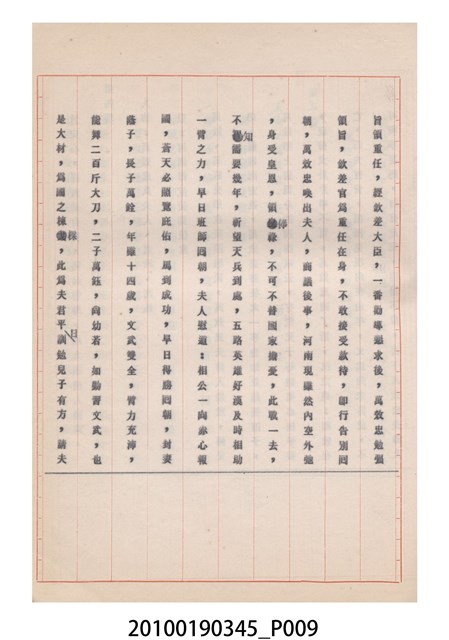 旨領重任，經欽差大臣，一番勸導懇求後，萬效忠勉強
領旨，欽差官爲重任在身，不敢接受款待，卽行告別回
朝，萬效忠喚出夫人，商議後事，河南現雖然內空外弛
，身受皇恩，領俸祿，不可不替國家擔憂，此戰一去，
不知需要幾年，祈望天兵到處，五路英雄好漢及時相助
一臂之力，早日班師回朝，夫人慰道：相公一向赤心報
國，蒼天必頭冕庇佑，馬到成功，早日得勝回朝，封妻
蔭子，長子萬銓，年雖十四歲，文武雙全，膂力充沛，
能舞二百斤大刀，二子萬鈺，尙幼若，如勤習文武，也
是大材，爲國之棟樑，此爲夫君平日訓勉兒子有方，請夫
20100190345_P009